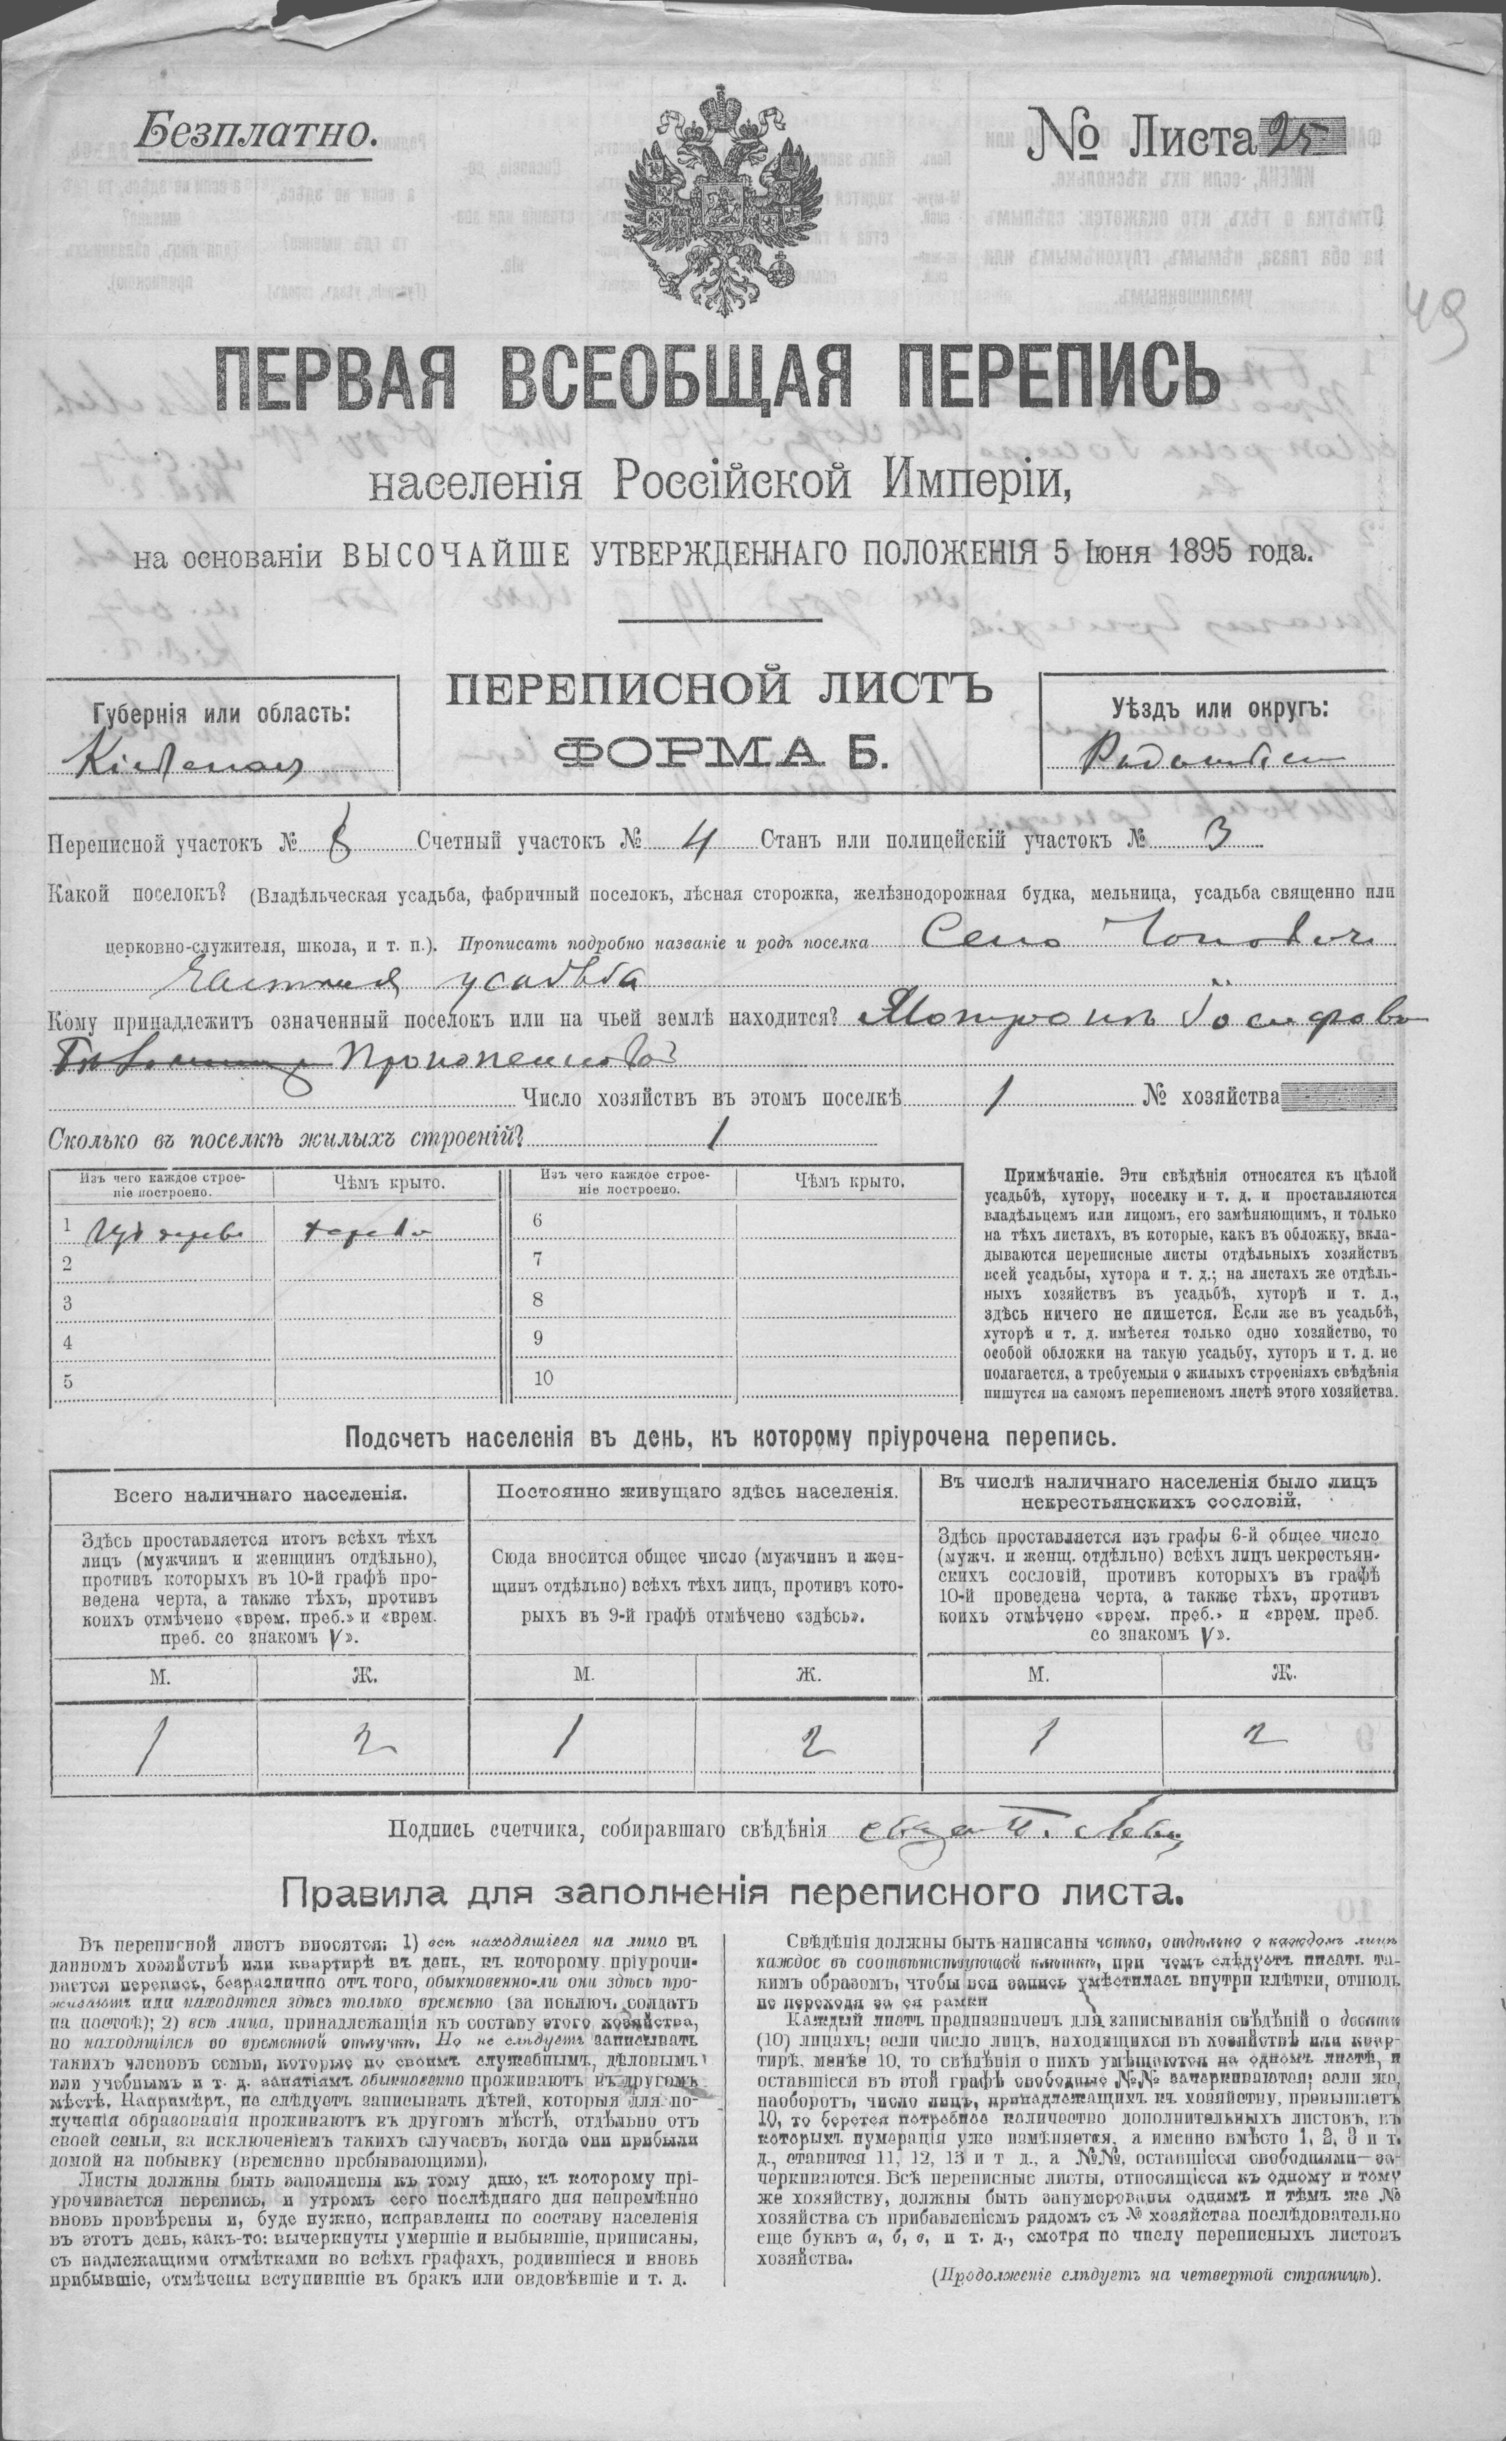 Безплатно.
№ Листа 25
49
ПЕРВАЯ ВСЕОБЩАЯ ПЕРЕПИСЬ
населенія Россійской Имперіи,
на основаніи ВЫСОЧАЙШЕ УТВЕРЖДЕННАГО ПОЛОЖЕНІЯ 5 Іюня 1895 года.
ПЕРЕПИСНОЙ ЛИСТЪ
ФОРМА Б.
Губернія или область:
Кіевская
Уѣздъ или округъ:
Переписной участокъ № 8 Счетный участокъ № 4 Станъ или полицейскій участокъ № 3
Какой поселокъ? (Владѣльческая усадьба, фабричный поселокъ, лѣсная сторожка, желѣзнодорожная будка, мельница, усадьба священно или
церковно-служителя, школа, и т. п.). Прописать подробно названіе и родъ поселка Село
частная усадьба
Кому принадлежитъ означенный поселокъ или на чьей землѣ находится?
Число хозяйствъ въ этомъ поселкѣ 1 № хозяйства
Сколько въ поселкѣ жилыхъ строеній? 1
Изъ чего каждое строе-
ніе построено.
Чѣмъ крыто.
Изъ чего каждое строе-
ніе построено.
Чѣмъ крыто.
1 6
2 7
3 8
4 9
5 10
Примѣчаніе. Эти свѣдѣнія относятся къ цѣлой
усадьбѣ, хутору, поселку и т. д. и проставляются
владѣльцемъ или лицомъ, его замѣняющимъ, и только
на тѣхъ листахъ, въ которые, какъ въ обложку, вкла-
дываются переписные листы отдѣльныхъ хозяйствъ
всей усадьбы, хутора и т. д.; на листахъ же отдѣль-
ныхъ хозяйствъ въ усадьбѣ, хуторѣ и т. д.,
здѣсь ничего не пишется. Если же въ усадьбѣ,
хуторѣ и т. д. имѣется только одно хозяйство, то
особой обложки на такую усадьбу, хуторъ и т. д. не
полагается, а требуемыя о жилыхъ строеніяхъ свѣдѣнія
пишутся на самомъ переписномъ листѣ этого хозяйства.
Подсчетъ населенія въ день, къ которому пріурочена перепись.
Всего наличнаго населенія.
Здѣсь проставляется итогъ всѣхъ тѣхъ
лицъ (мужчинъ и женщинъ отдѣльно),
противъ которыхъ въ 10-й графѣ про-
ведена черта, а также тѣхъ, противъ
коихъ отмѣчено «врем. преб.» и «врем.
преб. со знакомъ V».
М. Ж.
1 2
Постоянно живущаго здѣсь населенія.
Сюда вносится общее число (мужчинъ и жен-
щинъ отдѣльно) всѣхъ тѣхъ лицъ, противъ кото-
рыхъ въ 9-й графѣ отмѣчено «здѣсь».
М. Ж.
1 2
Въ числѣ наличнаго населенія было лицъ
некрестьянскихъ сословій.
Здѣсь проставляется изъ графы 6-й общее число
(мужч. и женщ. отдѣльно) всѣхъ лицъ некрестьян-
скихъ сословій, противъ которыхъ въ графѣ
10-й проведена черта, а также тѣхъ, противъ
коихъ отмѣчено «врем. преб.» и «врем. преб.
со знакомъ V».
М. Ж.
1 2
Подпись счетчика, собиравшаго свѣдѣнія
Правила для заполненія переписного листа.
Въ переписной листъ вносятся: 1) всѣ находящіеся на лицо въ
данномъ хозяйствѣ или квартирѣ въ день, къ которому пріурочи-
вается перепись, безразлично отъ того, обыкновенно-ли они здѣсь про-
живаютъ или находятся здѣсь только временно (за исключ. солдатъ
на постоѣ); 2) всѣ лица, принадлежащія къ составу этого хозяйства,
но находящіяся во временной отлучкѣ. Но не слѣдуетъ записывать
такихъ членовъ семьи, которые по своимъ служебнымъ, дѣловымъ
или учебнымъ и т. д. занятіямъ обыкновенно проживаютъ въ другомъ
мѣстѣ. Напримѣръ, не слѣдуетъ записывать дѣтей, которыя для по-
лученія образованія проживаютъ въ другомъ мѣстѣ, отдѣльно отъ
своей семьи, за исключеніемъ такихъ случаевъ, когда они прибыли
домой на побывку (временно пребывающими).
Листы должны быть заполнены къ тому дню, къ которому прі-
урочивается перепись, и утромъ сего послѣдняго дня непремѣнно
вновь провѣрены и, буде нужно, исправлены по составу населенія
въ этотъ день, какъ-то: вычеркнуты умершіе и выбывшіе, приписаны,
съ надлежащими отмѣтками во всѣхъ графахъ, родившіеся и вновь
прибывшіе, отмѣчены вступившіе въ бракъ или овдовѣвшіе и т. д.
Свѣдѣнія должны быть написаны четко, отдѣльно о каждомъ лицѣ
каждое въ соотвѣтствующей клѣткѣ, при чемъ слѣдуетъ писать та-
кимъ образомъ, чтобы вся запись умѣстилась внутри клѣтки, отнюдь
не переходя за ея рамки
Каждый листъ предназначенъ для записыванія свѣдѣній о десяти
(10) лицахъ; если число лицъ, находящихся въ хозяйствѣ или квар-
тирѣ, менѣе 10, то свѣдѣнія о нихъ умѣщаются на одномъ листѣ, и
оставшіеся въ этой графѣ свободные №№ зачеркиваются; если же,
наоборотъ, число лицъ, принадлежащихъ къ хозяйству, превышаетъ
10, то берется потребное количество дополнительныхъ листовъ, въ
которыхъ нумерація уже измѣняется, а именно вмѣсто 1, 2, 3 и т.
д., ставится 11, 12, 13 и т д., а №№, оставшіеся свободными—за-
черкиваются. Всѣ переписные листы, относящіеся къ одному и тому
же хозяйству, должны быть занумерованы однимъ и тѣмъ же №
хозяйства съ прибавленіемъ рядомъ съ № хозяйства послѣдовательно
еще буквъ а, б, в, и т. д., смотря по числу переписныхъ листовъ
хозяйства.
(Продолженіе слѣдуетъ на четвертой страницѣ).